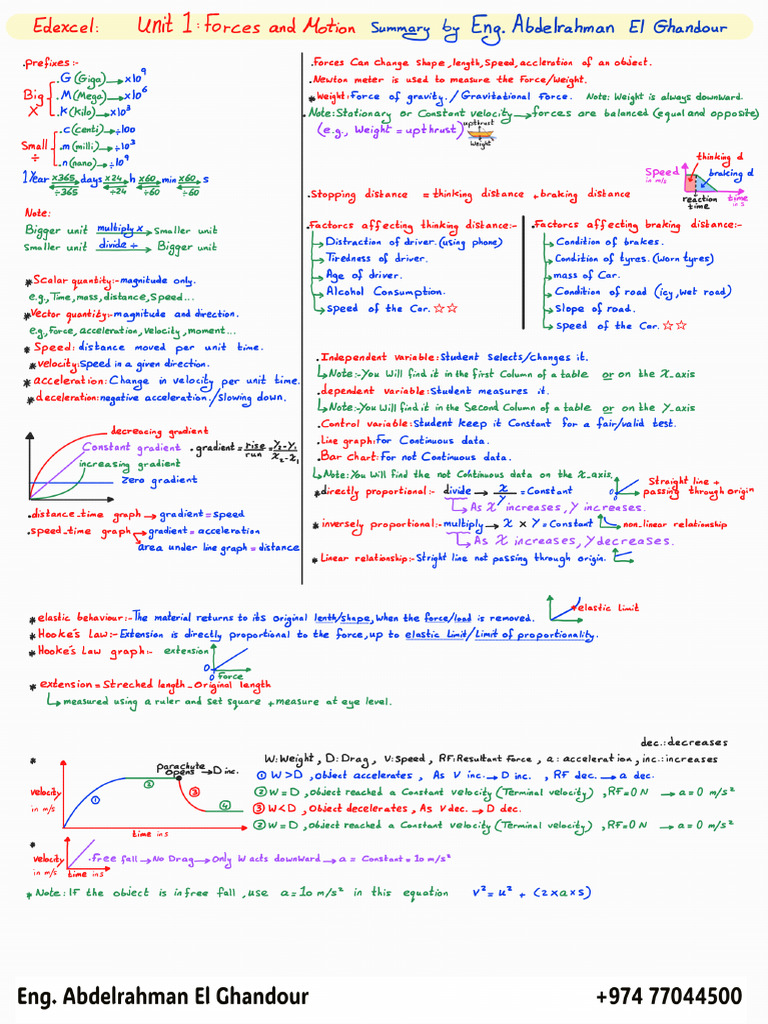 Edexcel: Unit 1: Forces and Motion Summary by Eng. Abdelrahman El Ghandour
.prefixes:-
Big X
.G (Giga) → x10⁹
.M (Mega) → x10⁶
.K (Kilo) → x10³
Small ÷
.c (centi) → ÷100
.m (milli) → ÷10³
.n (nano) → ÷10⁹
1 Year x365 ÷365 days x24 ÷24 h x60 ÷60 min x60 ÷60 s
Note:
Bigger unit multiply x → Smaller unit
Smaller unit divide ÷ → Bigger unit
* Scalar quantity:- magnitude only.
e.g., Time, mass, distance, Speed...
* Vector quantity:- magnitude and direction.
e.g., Force, acceleration, Velocity, moment...
* Speed: distance moved per unit time.
* velocity: Speed in a given direction.
* acceleration: Change in velocity per unit time.
* deceleration: negative acceleration./Slowing down.
decreacing gradient
Constant gradient
increasing gradient
Zero gradient
.gradient = rise/run = Y₂-Y₁/X₂-X₁
.distance-time graph → gradient = speed
.speed-time graph → gradient = acceleration
area under line graph = distance
.Forces Can change shape, length, Speed, accleration of an object.
.Newton meter is used to measure the Force/Weight.
* Weight: Force of gravity./Gravitational Force. Note: Weight is always downward.
.Note: Stationary or Constant velocity → forces are balanced (equal and opposite)
(e.g., Weight = upthrust)
upthrust
Weight
Speed in m/s
thinking d
braking d
reaction time
time in s
.Stopping distance = thinking distance + braking distance
.Factorcs affecting thinking distance:-
Distraction of driver. (using phone)
Tiredness of driver.
Age of driver.
Alcohol Consumption.
speed of the Car. ☆☆
.Factorcs affecting braking distance:-
Condition of brakes.
Condition of tyres. (Worn tyres)
mass of Car.
Condition of road (icy, wet road)
Slope of road.
speed of the Car. ☆☆
.Independent variable: Student Selects/changes it.
Note:-You Will find it in the first Column of a table or on the X_axis
.dependent variable: Student measures it.
Note:-You Will find it in the Second Column of a table or on the Y_axis
.Control variable: Student keep it Constant for a fair/valid test.
.Line graph: For Continuous data.
.Bar chart: For not Continuous data.
Note: You Will find the not Continuous data on the X_axis.
* directly proportional:- divide → X/Y = Constant
As X increases, Y increases.
Straight line + passing through origin
* inversely proportional:- multiply → X × Y = Constant
non-linear relationship
As X increases, Y decreases.
* Linear relationship:- Stright line not passing through origin.
* elastic behaviour:- The material returns to its original lenth/shape, When the force/load is removed.
elastic Limit
* Hooke's Law:- Extension is directly proportional to the force, up to elastic Limit/Limit of proportionality.
* Hooke's Law graph:- extension
0
0 Force
* extension = Streched length - Original length
measured using a ruler and set square + measure at eye level.
dec.: decreases
W: Weight, D: Drag, V: Speed, RF: Resultant force, a: acceleration, inc.: increases
*
velocity in m/s
parachute opens → D inc.
① ② ③ ④
time in s
① W > D, object accelerates, As V inc. → D inc., RF dec. → a dec.
② W = D, object reached a Constant velocity (Terminal velocity), RF = 0 N → a = 0 m/s²
③ W < D, Object decelerates, As V dec. → D dec.
② W = D, object reached a Constant velocity (Terminal velocity), RF = 0 N → a = 0 m/s²
*
velocity in m/s
time in s
.Free fall → No Drag → Only W acts downward → a = Constant = 10 m/s²
* Note: If the object is in free fall, use a = 10 m/s² in this equation v² = u² + (2×a×s)
Eng. Abdelrahman El Ghandour +974 77044500